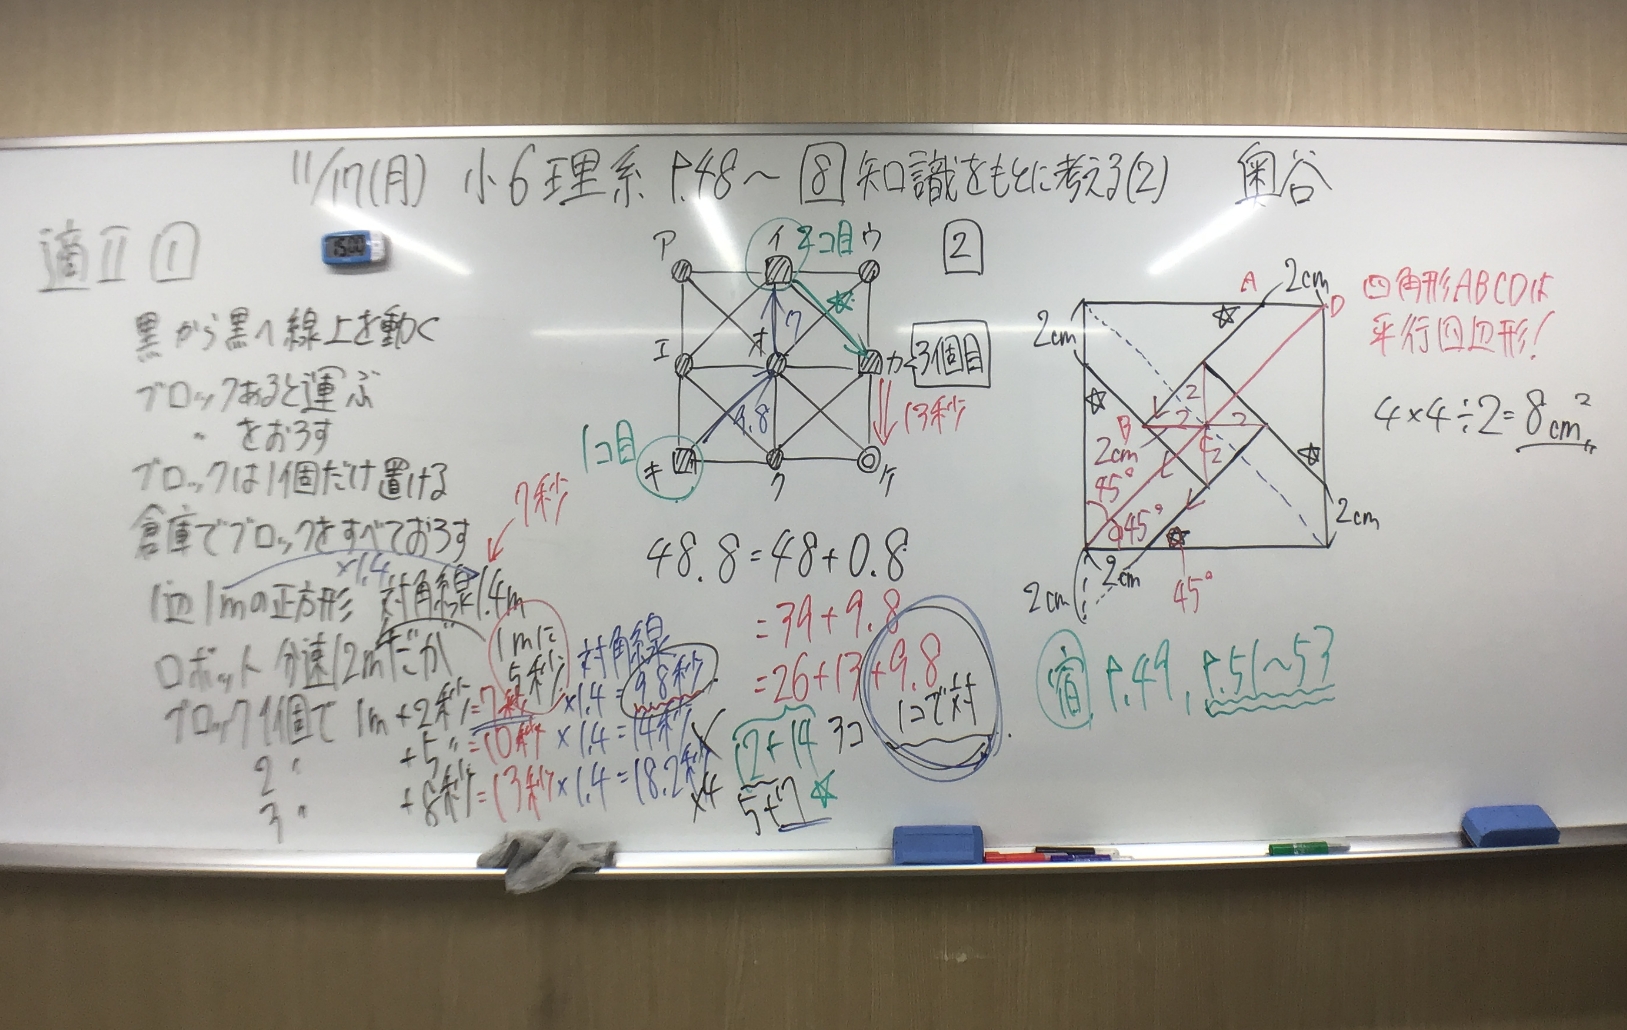 11/17(月) 小6理系 P.48～ 8 知識をもとに考える(2) 奥谷
適Ⅱ 1
15:00
黒から黒へ線上を動く
ブロックあると運ぶ
〃 をおろす
ブロックは1個だけ置ける
倉庫でブロックをすべておろす
×1.4
7秒
1辺1mの正方形 対角線1.4m
ロボット 分速12mだが
1mに
5秒
対角線
ブロック1個で 1m+2秒=7秒×1.4=9.8秒
2 〃 +5〃=10秒×1.4=14秒
3 〃 +8秒=13秒×1.4=18.2秒
ア イ 2コ目 ウ
エ オ カ 3個目
7
9.8
13秒
1コ目 キ ク ケ
48.8=48+0.8
=39+9.8
=26+13+9.8
12+14 3コ
1コで対
5+7
2
A 2cm D
2cm
B C
2 2 2 2
2cm
45°
45°
45°
2cm
2cm
2cm
四角形ABCDは
平行四辺形!
4×4÷2=8cm²
宿 P.49, P.51～53